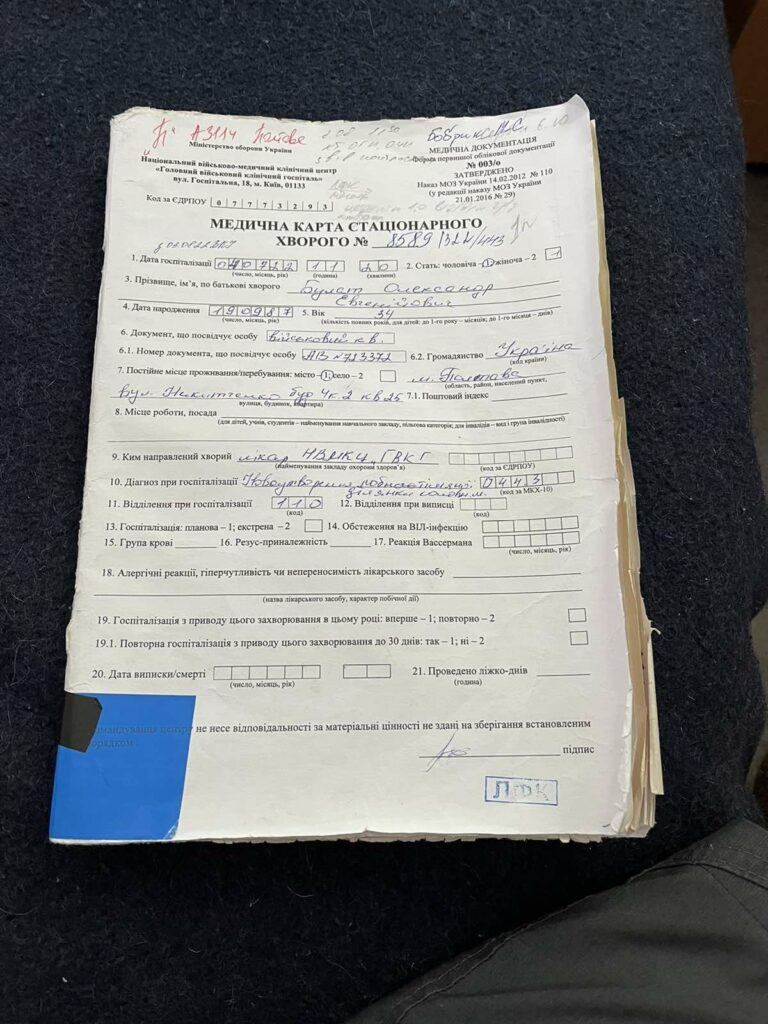 А3114
Міністерство оборони України
Національний військово-медичний клінічний центр
«Головний військовий клінічний госпіталь»
вул. Госпітальна, 18, м. Київ, 01133
Код за ЄДРПОУ 0 7 7 7 3 2 9 3
МЕДИЧНА ДОКУМЕНТАЦІЯ
Форма первинної облікової документації
№ 003/о
ЗАТВЕРДЖЕНО
Наказ МОЗ України 14.02.2012 № 110
(у редакції наказу МОЗ України
21.01.2016 № 29)
МЕДИЧНА КАРТА СТАЦІОНАРНОГО
ХВОРОГО № 8589/322/443
1. Дата госпіталізації 040722 11 20 2. Стать: чоловіча – 1; жіноча – 2 1
(число, місяць, рік) (година) (хвилини)
3. Прізвище, ім’я, по батькові хворого Булат Олександр
Євгенійович
4. Дата народження 190987 5. Вік 34
(число, місяць, рік) (кількість повних років, для дітей: до 1-го року – місяців; до 1-го місяця – днів)
6. Документ, що посвідчує особу військовий кв.
6.1. Номер документа, що посвідчує особу АВ №713372 6.2. Громадянство Україна
(код країни)
7. Постійне місце проживання/перебування: місто – 1; село – 2 м. Полтава
(область, район, населений пункт,
вул. 2 кв 25 7.1. Поштовий індекс
вулиця, будинок, квартира)
8. Місце роботи, посада
(для дітей, учнів, студентів – найменування навчального закладу, пільгова категорія; для інвалідів – вид і група інвалідності)
9. Ким направлений хворий лікар НВМКЦ „ГВКГ
(найменування закладу охорони здоров’я) (код за ЄДРПОУ)
10. Діагноз при госпіталізації Новоутворення D443
ділянки (код за МКХ-10)
11. Відділення при госпіталізації 110 12. Відділення при виписці
(код) (код)
13. Госпіталізація: планова – 1; екстрена – 2 14. Обстеження на ВІЛ-інфекцію
15. Група крові 16. Резус-приналежність 17. Реакція Вассермана
(число, місяць, рік)
18. Алергічні реакції, гіперчутливість чи непереносимість лікарського засобу
(назва лікарського засобу, характер побічної дії)
19. Госпіталізація з приводу цього захворювання в цьому році: вперше – 1; повторно – 2
19.1. Повторна госпіталізація з приводу цього захворювання до 30 днів: так – 1; ні – 2
20. Дата виписки/смерті 21. Проведено ліжко-днів
(число, місяць, рік) (година)
центру не несе відповідальності за матеріальні цінності не здані на зберігання встановленим
порядком
підпис
ЛФК